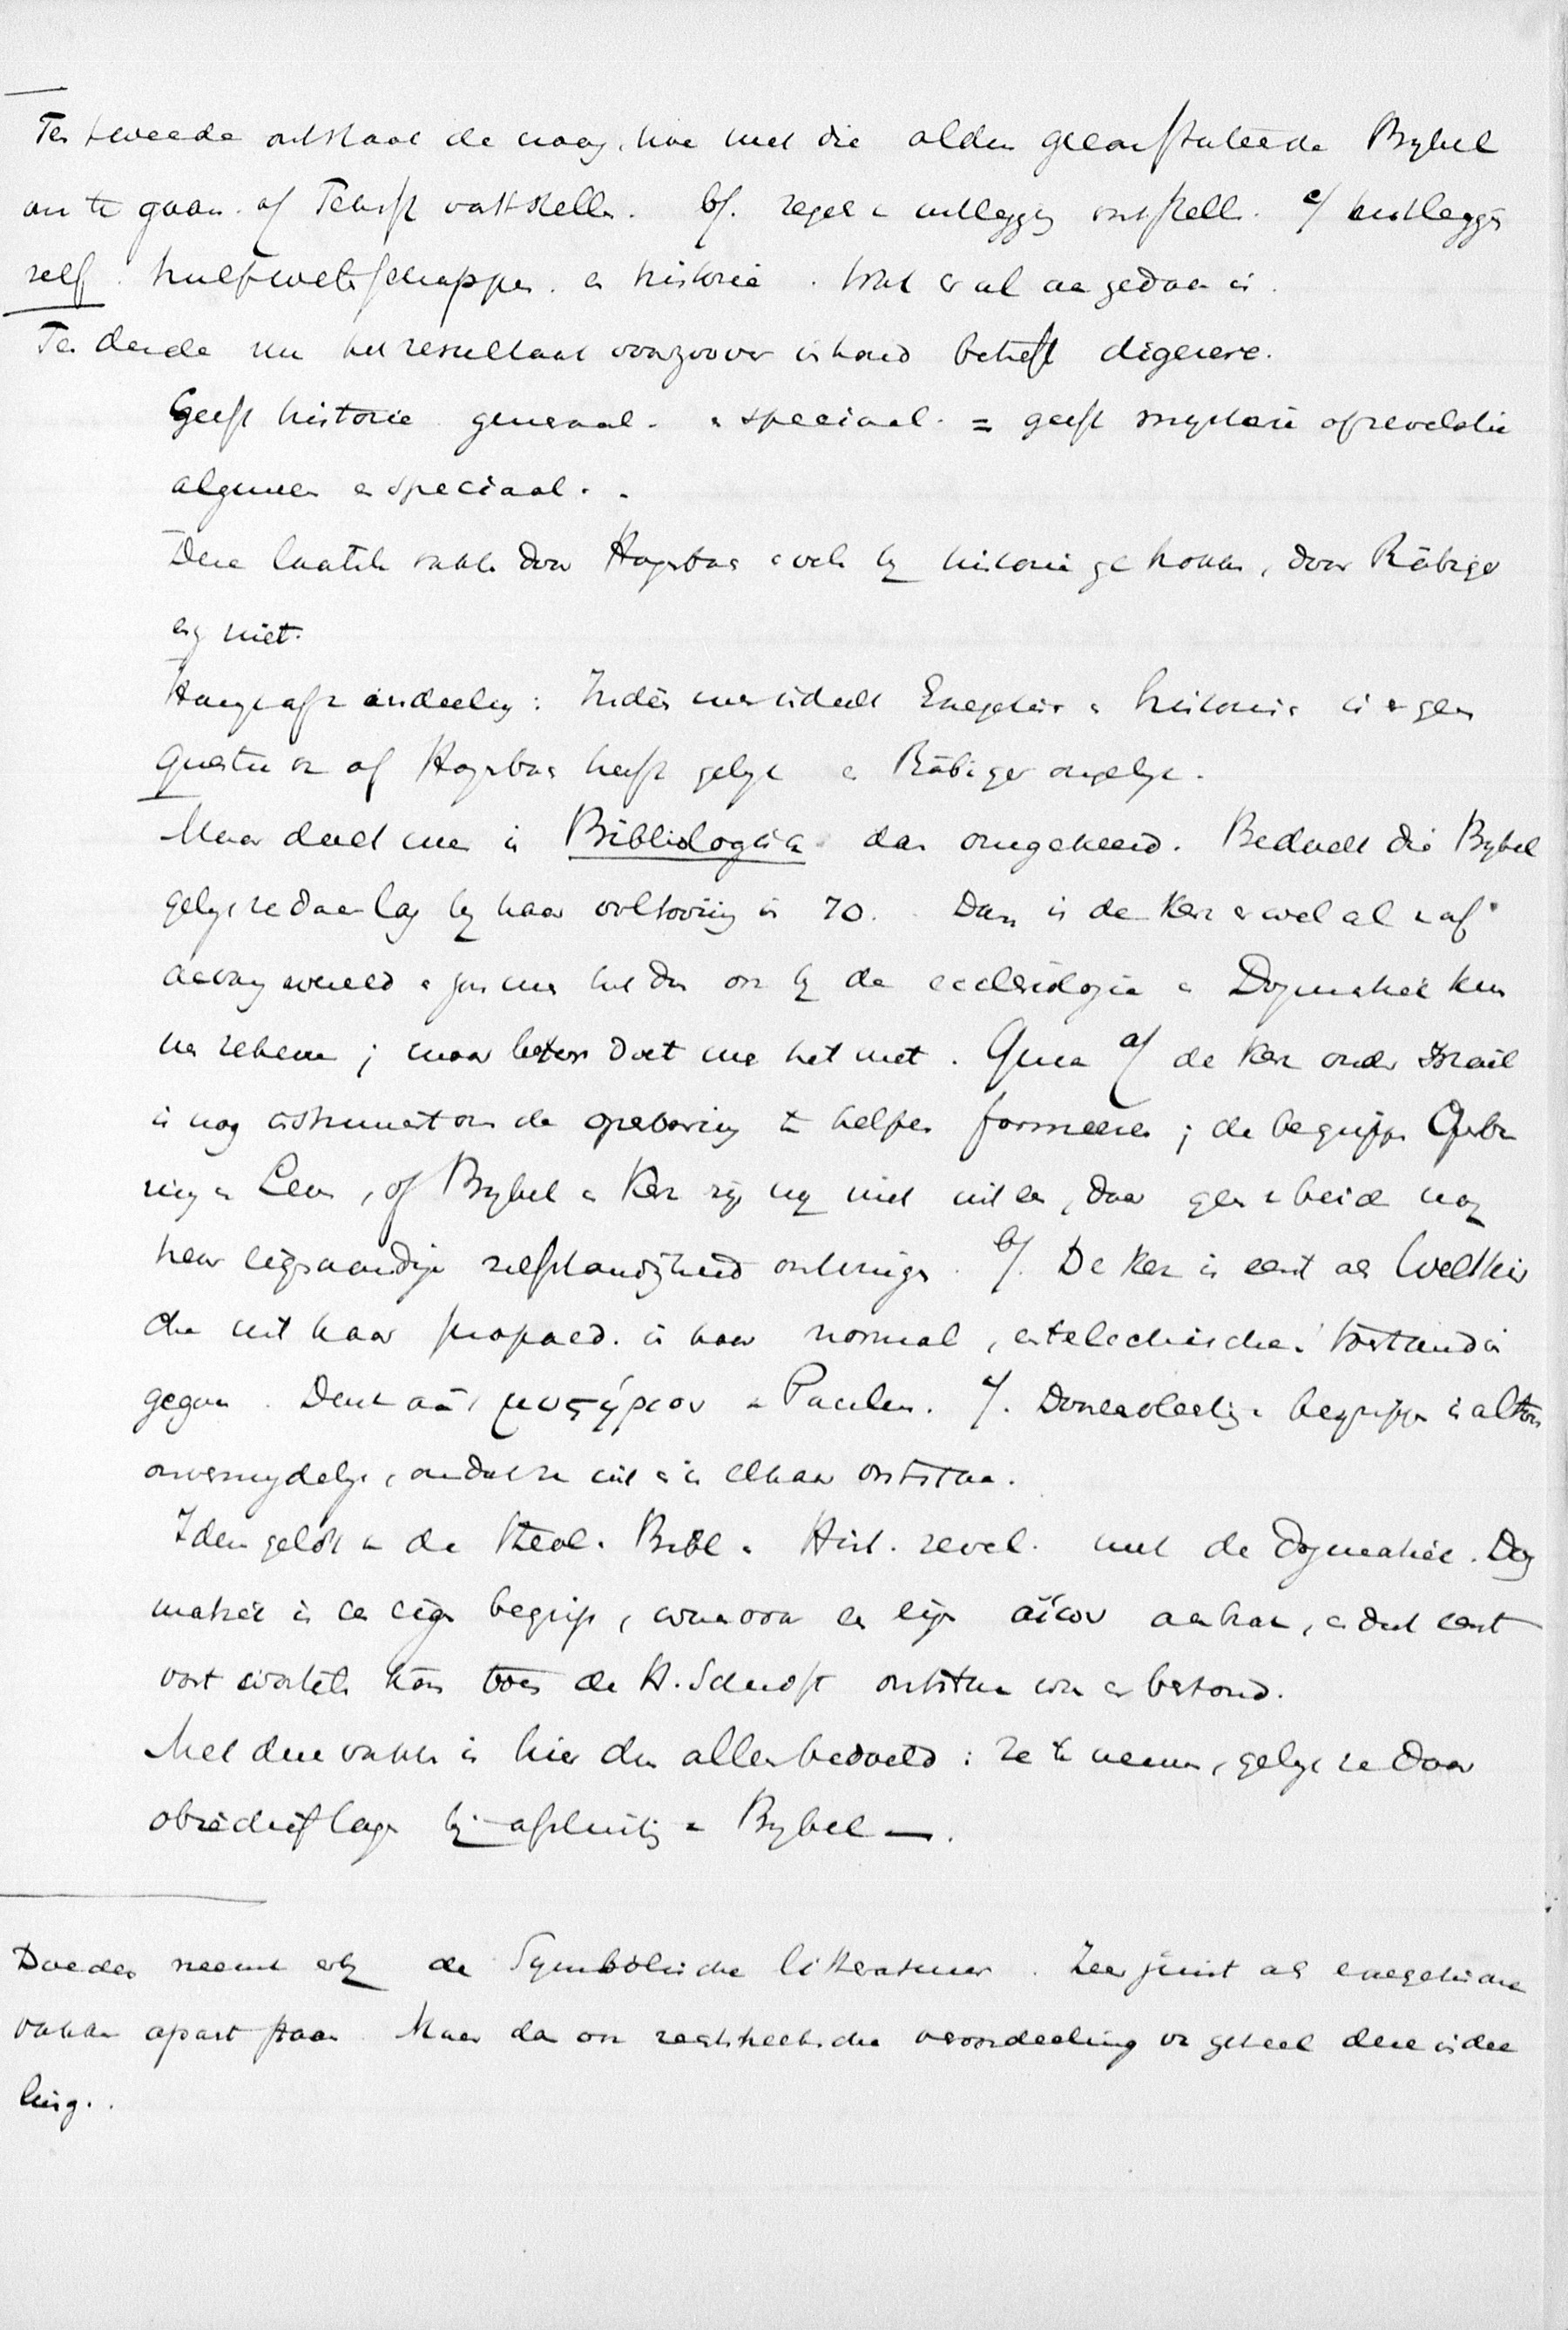 Ten tweede ontstaat de vraag, hoe met die aldus geconstateerde Bybel
om te gaan. a/ Tekst vaststellen. b/. regels uitlegging vaststell. c/ uitlegging
zelf. hulpwetenschappen. en historie. Wat er al aan gedaan is.
Ten derde nu het resultaat voorzoover inhoud betreft digerere.
Geeft historie generaal. en speciaal. = geeft mysterie of revelatie
algemeen en speciaal.
Deze laatste vakken door Hagenbach ook by historie getrokken, door Räbiger
niet.
Hangt af van indeeling: Indien men indeelt Exegetica en historia is er geen
questie van of Hagenbach heeft gelyk en Räbiger ongelyk.
Maar deelt men in Bibliologia dan omgekeerd. Bedoelt die Bybel
gelyk ze daar lag by haar voltooiing in 70. Dan is de Kerk er wel al
en men het dus ook by de ecclesiologie en Dogmatiek kun
nen nemen; maar beter doet men het niet. Quia a/ de Kerk onder Israel
is nog instrument om de openbaring te helpen formeeren; de begrippen Openba
ring en Leer, of Bybel en Kerk zyn nog niet uiteen, daar geen beide nog
haar eigenaardige zelfstandigheid ontvingen. b/. De Kerk is eerst als Weltkirche
die uit haar propaed. in haar normal, entelechische toestand is
gegaan. Denk aan μυστήριον van Paulus. c/. Dooreenvloeiing van begrippen is altoos
onvermydelyk, omdat ze uit en in elkaar ontstaan.
Idem geldt van de Theol. Bibl. en Hist. revel. met de Dogmatiek. Dog
matiek is een eigen begrip, waarvoor een eigen αἰών aanbrak, en dat eerst
voortwortelen kon toen de H. Schrift ontstaan was en bestond.
Met deze vakken is hier dus alleen bedoeld: ze te nemen, gelyk ze daar
by afsluiting van Bybel —.
Doedes neemt erby de Symbolische litteratuur. Zeer juist als exegetische
vakken apart staan. Maar dan ook veroordeeling van geheel deze indee
ling.